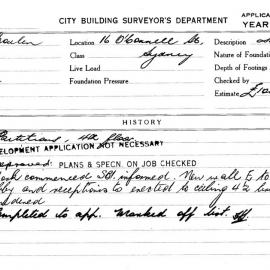 CITY BUILDING SURVEYOR'S DEPARTMENT
APPLICA
YEAR
Location 16 O'Connell St.
Description
Class Sydney
Nature of Foundation
Live Load
Depth of Footings
Foundation Pressure
Checked by
Estimate
HISTORY
Partitions, 4th floor
ELOPMENT APPLICATION NOT NECESSARY
pproved: PLANS & SPECN. ON JOB CHECKED
commenced informed. New wall E to
and receptions to erected to ceiling
Completed to app. Marked off list